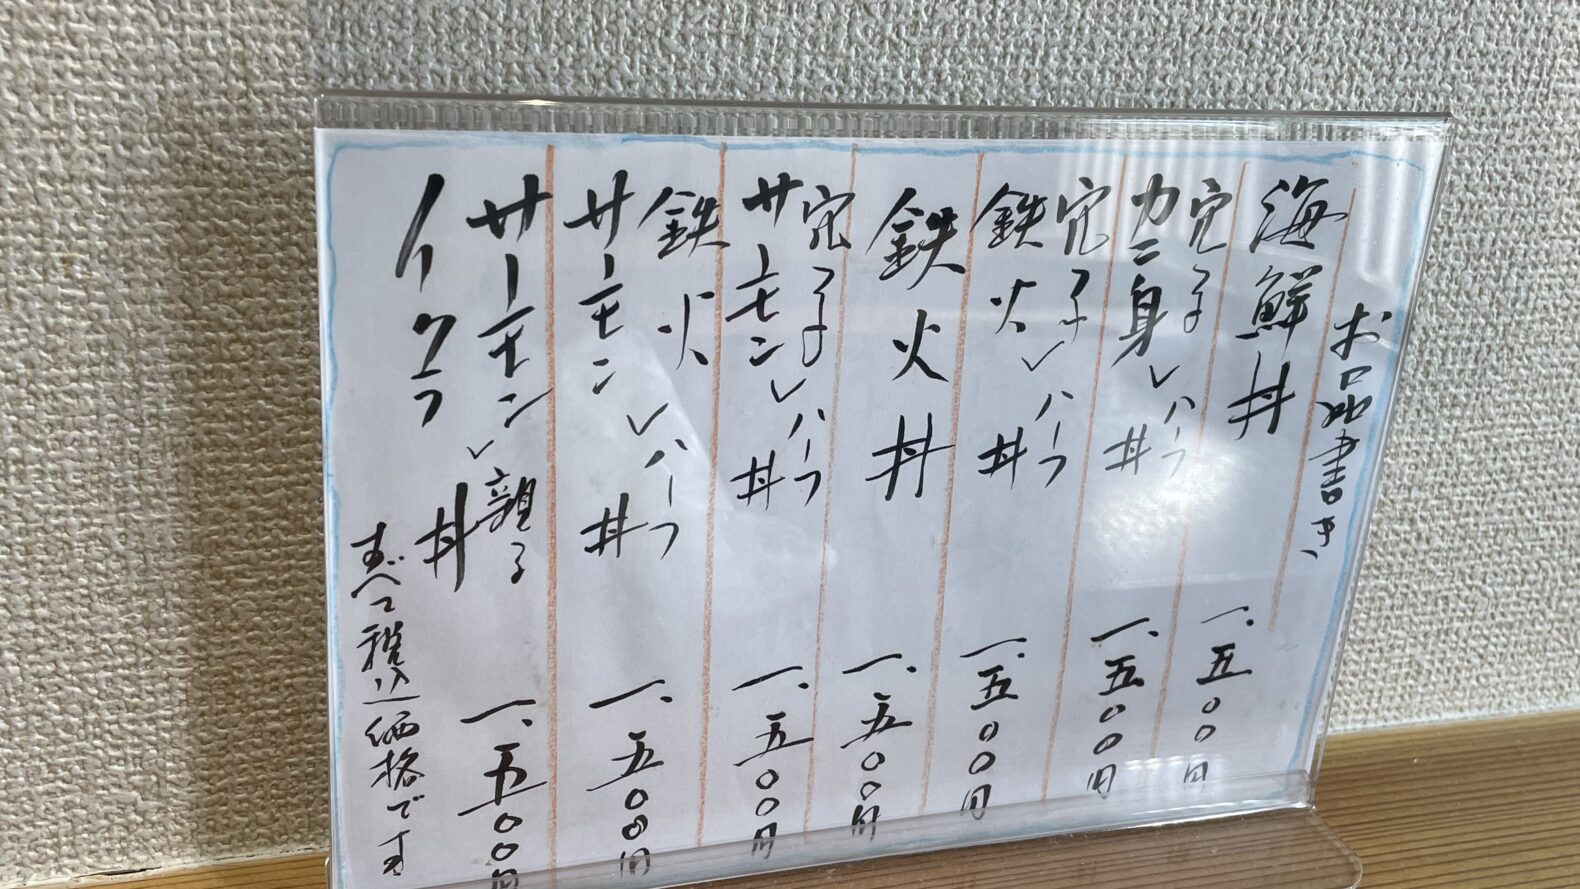 お品書き
海鮮丼 一、五〇〇円
穴子
カニ身〵ハーフ丼 一、五〇〇円
穴子
鉄火〵ハーフ丼 一、五〇〇円
鉄火丼 一、五〇〇円
穴子
サーモン〵ハーフ丼 一、五〇〇円
鉄火
サーモン〵ハーフ丼 一、五〇〇円
サーモン
イクラ〵親子丼 一、五〇〇円
すべて税込価格です